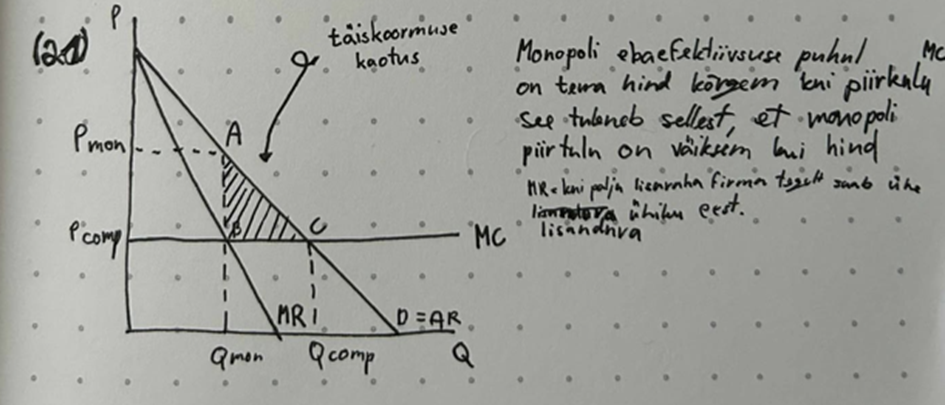 (21)
P
täiskoormuse
kaotus
A
Pmon
B
C
Pcomp
MC
MR
D = AR
Qmon
Qcomp
Q
Monopoli ebaefektiivsuse puhul MC
on tema hind kõrgem kui piirkulu
see tuleneb sellest, et monopoli
piirtulu on väiksem kui hind
MR = kui palju lisaraha firma saab ühe
ühiku eest.
lisanduva